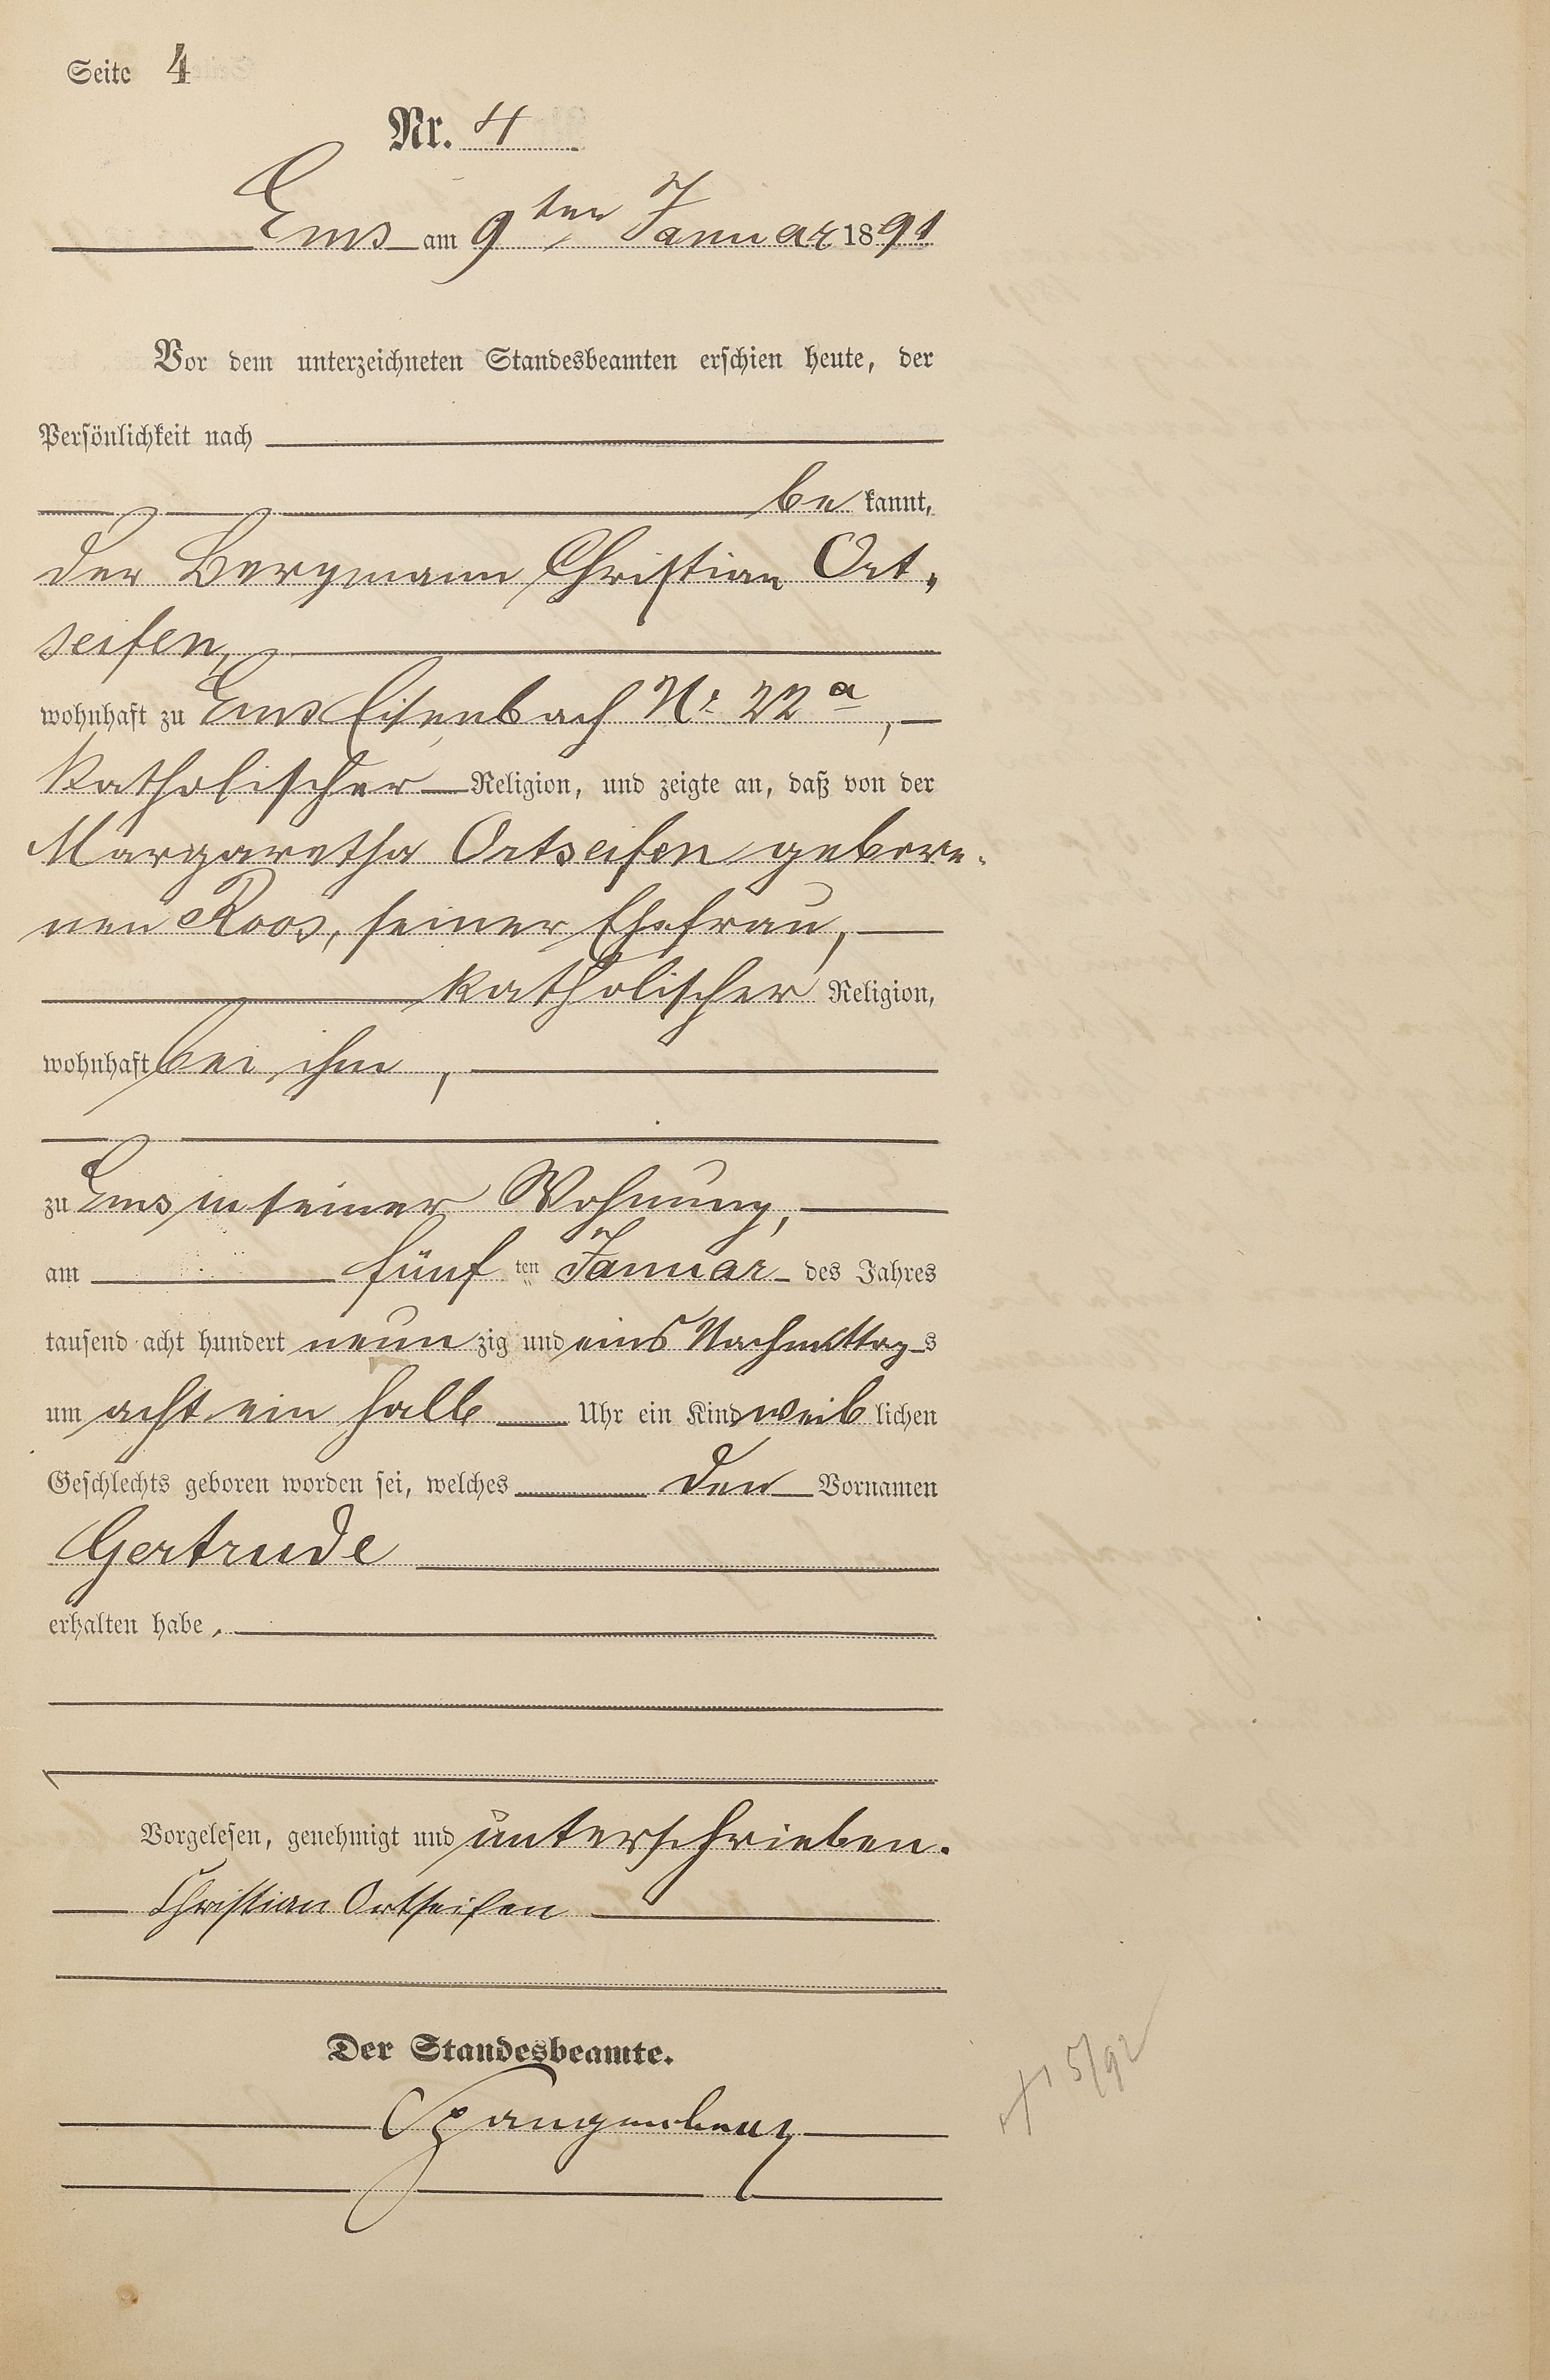 Seite 4
Nr. 4
Ems am 9ten Januar 1891
Vor dem unterzeichneten Standesbeamten erschien heute, der
Persönlichkeit nach
be kannt,
der Bergmann Christian Ort-
seifen,
wohnhaft zu Ems Eisenbach Nr. 22a,
katholischer Religion, und zeigte an, daß von der
Margaretha Ortseifen gebore-
nen Roos, seiner Ehefrau,
katholischer Religion,
wohnhaft bei ihm,
zu Ems in seiner Wohnung,
am fünf ten Januar des Jahres
tausend acht hundert neun zig und eins Nachmittag s
um acht ein halb Uhr ein Kind weib lichen
Geschlechts geboren worden sei, welches den Vornamen
Gertrude
erhalten habe.
Vorgelesen, genehmigt und unterschrieben.
Christian Ortseifen
Der Standesbeamte.
Spangenberg
5/92